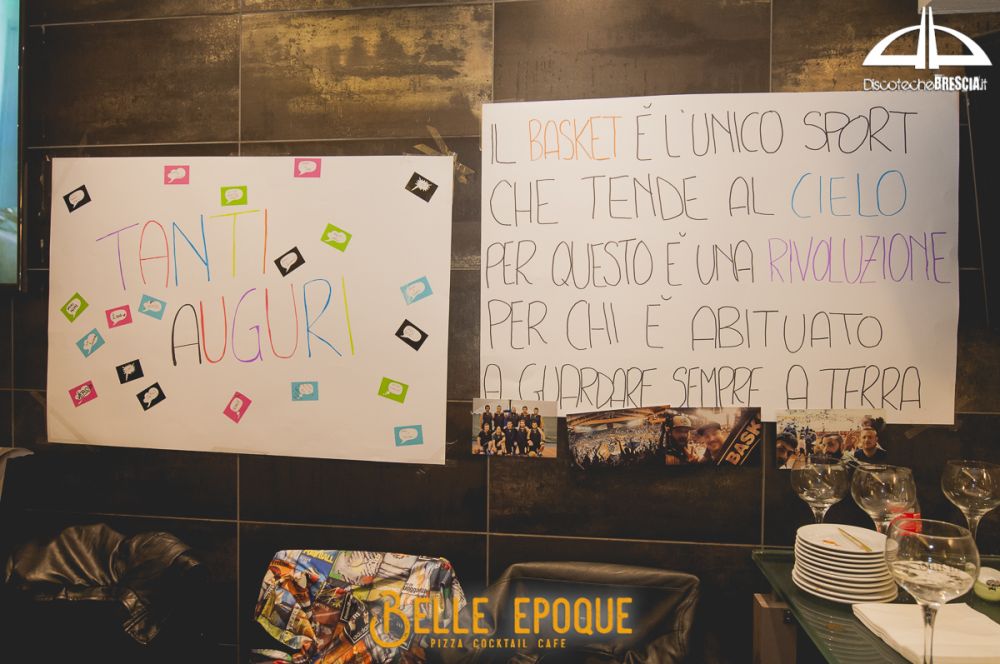 DiscotecheBRESCIA.it
TANTI
AUGURI
IL BASKET È L'UNICO SPORT
CHE TENDE AL CIELO
PER QUESTO È UNA RIVOLUZIONE
PER CHI È ABITUATO
A GUARDARE SEMPRE A TERRA
BASK
BELLE EPOQUE
PIZZA COCKTAIL CAFE